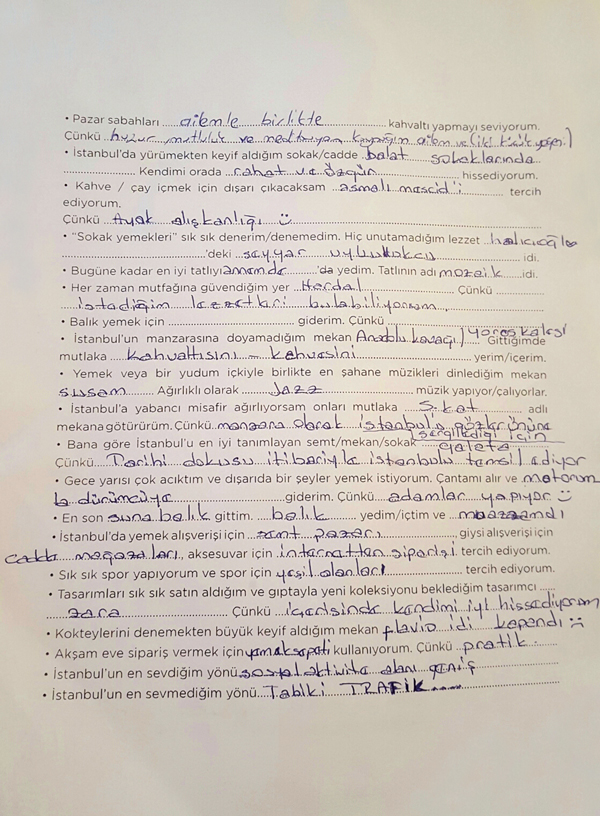 • Pazar sabahları ailemle birlikte kahvaltı yapmayı seviyorum.
Çünkü huzur, mutluluk ve kaynağım ailem ve (iki
• İstanbul'da yürümekten keyif aldığım sokak/cadde balat sokaklarında
Kendimi orada rahat ve özgün hissediyorum.
• Kahve / çay içmek için dışarı çıkacaksam asmalı mescid'i tercih
ediyorum.
Çünkü Ayak alışkanlığı :)
• "Sokak yemekleri" sık sık denerim/denemedim. Hiç unutamadığım lezzet halıcıoğlu
'deki seyyar idi.
• Bugüne kadar en iyi tatlıyı annemde 'da yedim. Tatlının adı mozaik idi.
• Her zaman mutfağına güvendiğim yer Hardal Çünkü
istediğim lezzetleri bulabiliyorum.
• Balık yemek için giderim. Çünkü
• İstanbul'un manzarasına doyamadığım mekan Anadolu kavağı / yoros kalesi Gittiğimde
mutlaka kahvaltısını - kahvesini yerim/içerim.
• Yemek veya bir yudum içkiyle birlikte en şahane müzikleri dinlediğim mekan
susam Ağırlıklı olarak Jazz müzik yapıyor/çalıyorlar.
• İstanbul'a yabancı misafir ağırlıyorsam onları mutlaka 5. kat adlı
mekana götürürüm. Çünkü manzara olarak istanbul'u gözler önüne
sergilediği için
• Bana göre İstanbul'u en iyi tanımlayan semt/mekan/sokak galata
Çünkü Tarihi dokusu itibariyle istanbulu temsil ediyor
• Gece yarısı çok acıktım ve dışarıda bir şeyler yemek istiyorum. Çantamı alır ve motorum
la dürümcüye giderim. Çünkü adamlar yapıyor :)
• En son suna balık gittim. balık yedim/içtim ve muazzamdı
• İstanbul'da yemek alışverişi için semt pazarı, giysi alışverişi için
cadde mağazaları, aksesuvar için internetten siparişi tercih ediyorum.
• Sık sık spor yapıyorum ve spor için yeşil alanları tercih ediyorum.
• Tasarımları sık sık satın aldığım ve gıptayla yeni koleksiyonu beklediğim tasarımcı
zara Çünkü içerisinde kendimi iyi hissediyorum
• Kokteylerini denemekten büyük keyif aldığım mekan flavio idi kapandı :(
• Akşam eve sipariş vermek için yemeksepeti kullanıyorum. Çünkü pratik.
• İstanbul'un en sevdiğim yönü sosyal aktivite alanı geniş
• İstanbul'un en sevmediğim yönü Tabiki TRAFİK